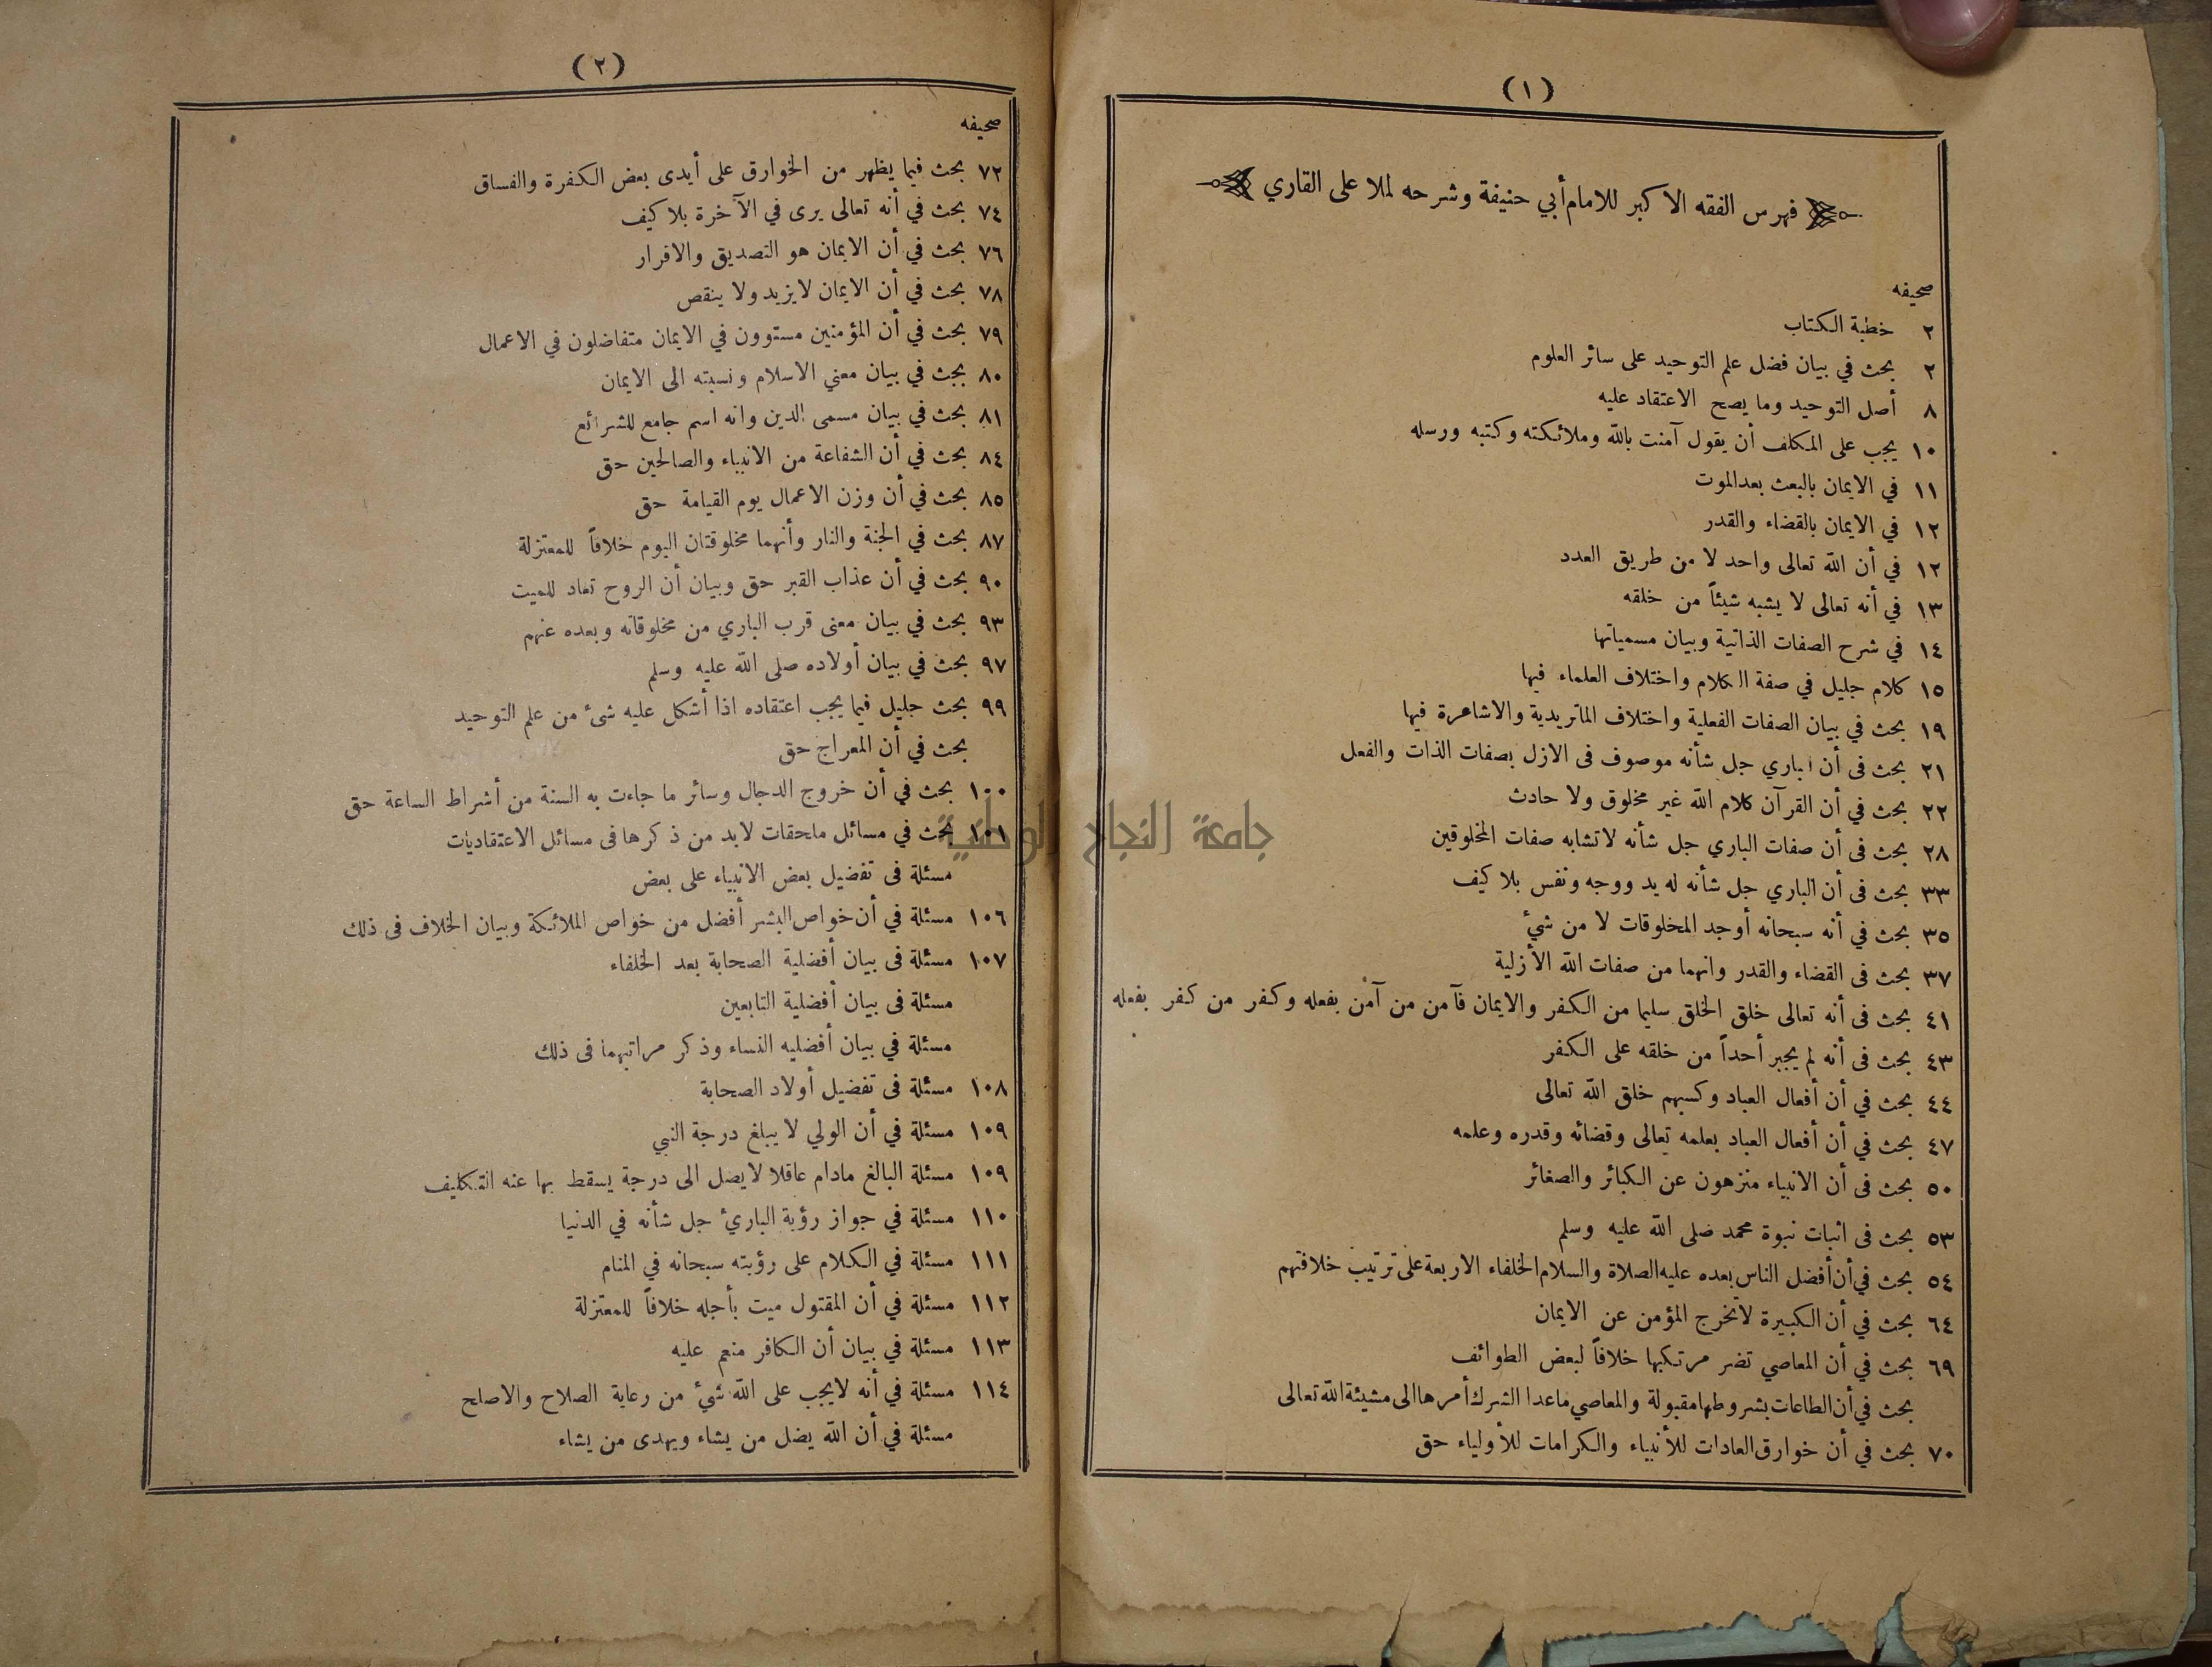 (١)
فهرس الفقه الاكبر للامام أبي حنيفة وشرحه لملا على القاري
صحيفه
٢ خطبة الكتاب
٢ بحث في بيان فضل علم التوحيد على سائر العلوم
٨ أصل التوحيد وما يصح الاعتقاد عليه
١٠ يجب على المكلف أن يقول آمنت بالله وملائكته وكتبه ورسله
١١ في الايمان بالبعث بعد الموت
١٢ في الايمان بالقضاء والقدر
١٢ في أن الله تعالى واحد لا من طريق العدد
١٣ في أنه تعالى لا يشبه شيئاً من خلقه
١٤ في شرح الصفات الذاتية وبيان مسمياتها
١٥ كلام جليل في صفة الكلام واختلاف العلماء فيها
١٩ بحث في بيان الصفات الفعلية واختلاف الماتريدية والاشاعرة فيها
٢١ بحث فى أن الباري جل شأنه موصوف فى الازل بصفات الذات والفعل
٢٢ بحث في أن القرآن كلام الله غير مخلوق ولا حادث
٢٨ بحث فى أن صفات الباري جل شأنه لا تشابه صفات المخلوقين
٣٣ بحث فى أن الباري جل شأنه له يد ووجه ونفس بلا كيف
٣٥ بحث في أنه سبحانه أوجد المخلوقات لا من شيء
٣٧ بحث فى القضاء والقدر وانهما من صفات الله الأزلية
٤١ بحث فى أنه تعالى خلق الخلق سليما من الكفر والايمان فآمن من آمن بفعله وكفر من كفر بفعله
٤٣ بحث فى أنه لم يجبر أحداً من خلقه على الكفر
٤٤ بحث في أن أفعال العباد وكسبهم خلق الله تعالى
٤٧ بحث في أن أفعال العباد بعلمه تعالى وقضائه وقدره وعلمه
٥٠ بحث فى أن الانبياء منزهون عن الكبائر والصغائر
٥٣ بحث فى اثبات نبوة محمد صلى الله عليه وسلم
٥٤ بحث في أن أفضل الناس بعده عليه الصلاة والسلام الخلفاء الاربعة على ترتيب خلافتهم
٦٤ بحث في أن الكبيرة لا تخرج المؤمن عن الايمان
٦٩ بحث في أن المعاصي تضر مرتكبها خلافاً لبعض الطوائف
بحث في أن الطاعات بشروطها مقبولة والمعاصي ماعدا الشرك أمرها الى مشيئة الله تعالى
٧٠ بحث في أن خوارق العادات للأنبياء والكرامات للأولياء حق
(٢)
صحيفه
٧٢ بحث فيما يظهر من الخوارق على أيدى بعض الكفرة والفساق
٧٤ بحث في أنه تعالى يرى في الآخرة بلا كيف
٧٦ بحث في أن الايمان هو التصديق والاقرار
٧٨ بحث في أن الايمان لا يزيد ولا ينقص
٧٩ بحث في أن المؤمنين مستوون في الايمان متفاضلون في الاعمال
٨٠ بحث في بيان معني الاسلام ونسبته الى الايمان
٨١ بحث في بيان مسمى الدين وانه اسم جامع للشرائع
٨٤ بحث في أن الشفاعة من الانبياء والصالحين حق
٨٥ بحث في أن وزن الاعمال يوم القيامة حق
٨٧ بحث في الجنة والنار وأنهما مخلوقتان اليوم خلافاً للمعتزلة
٩٠ بحث في أن عذاب القبر حق وبيان أن الروح تعاد للميت
٩٣ بحث في بيان معنى قرب الباري من مخلوقاته وبعده عنهم
٩٧ بحث في بيان أولاده صلى الله عليه وسلم
٩٩ بحث جليل فيما يجب اعتقاده اذا أشكل عليه شئ من علم التوحيد
بحث في أن المعراج حق
١٠٠ بحث في أن خروج الدجال وسائر ما جاءت به السنة من أشراط الساعة حق
١٠١ بحث في مسائل ملحقات لابد من ذكرها فى مسائل الاعتقاديات
مسئلة فى تفضيل بعض الانبياء على بعض
١٠٦ مسئلة في أن خواص البشر أفضل من خواص الملائكة وبيان الخلاف فى ذلك
١٠٧ مسئلة فى بيان أفضلية الصحابة بعد الخلفاء
مسئلة فى بيان أفضلية التابعين
مسئلة في بيان أفضليه النساء وذكر مراتبهما فى ذلك
١٠٨ مسئلة فى تفضيل أولاد الصحابة
١٠٩ مسئلة في أن الولي لا يبلغ درجة النبي
١٠٩ مسئلة البالغ مادام عاقلا لا يصل الى درجة يسقط بها عنه التكليف
١١٠ مسئلة في جواز رؤية الباريء جل شأنه في الدنيا
١١١ مسئلة في الكلام على رؤيته سبحانه في المنام
١١٢ مسئلة في أن المقتول ميت بأجله خلافاً للمعتزلة
١١٣ مسئلة في بيان أن الكافر منعم عليه
١١٤ مسئلة في أنه لايجب على الله شيء من رعاية الصلاح والاصلح
مسئلة في أن الله يضل من يشاء ويهدى من يشاء
جامعة النجاح الوطنية